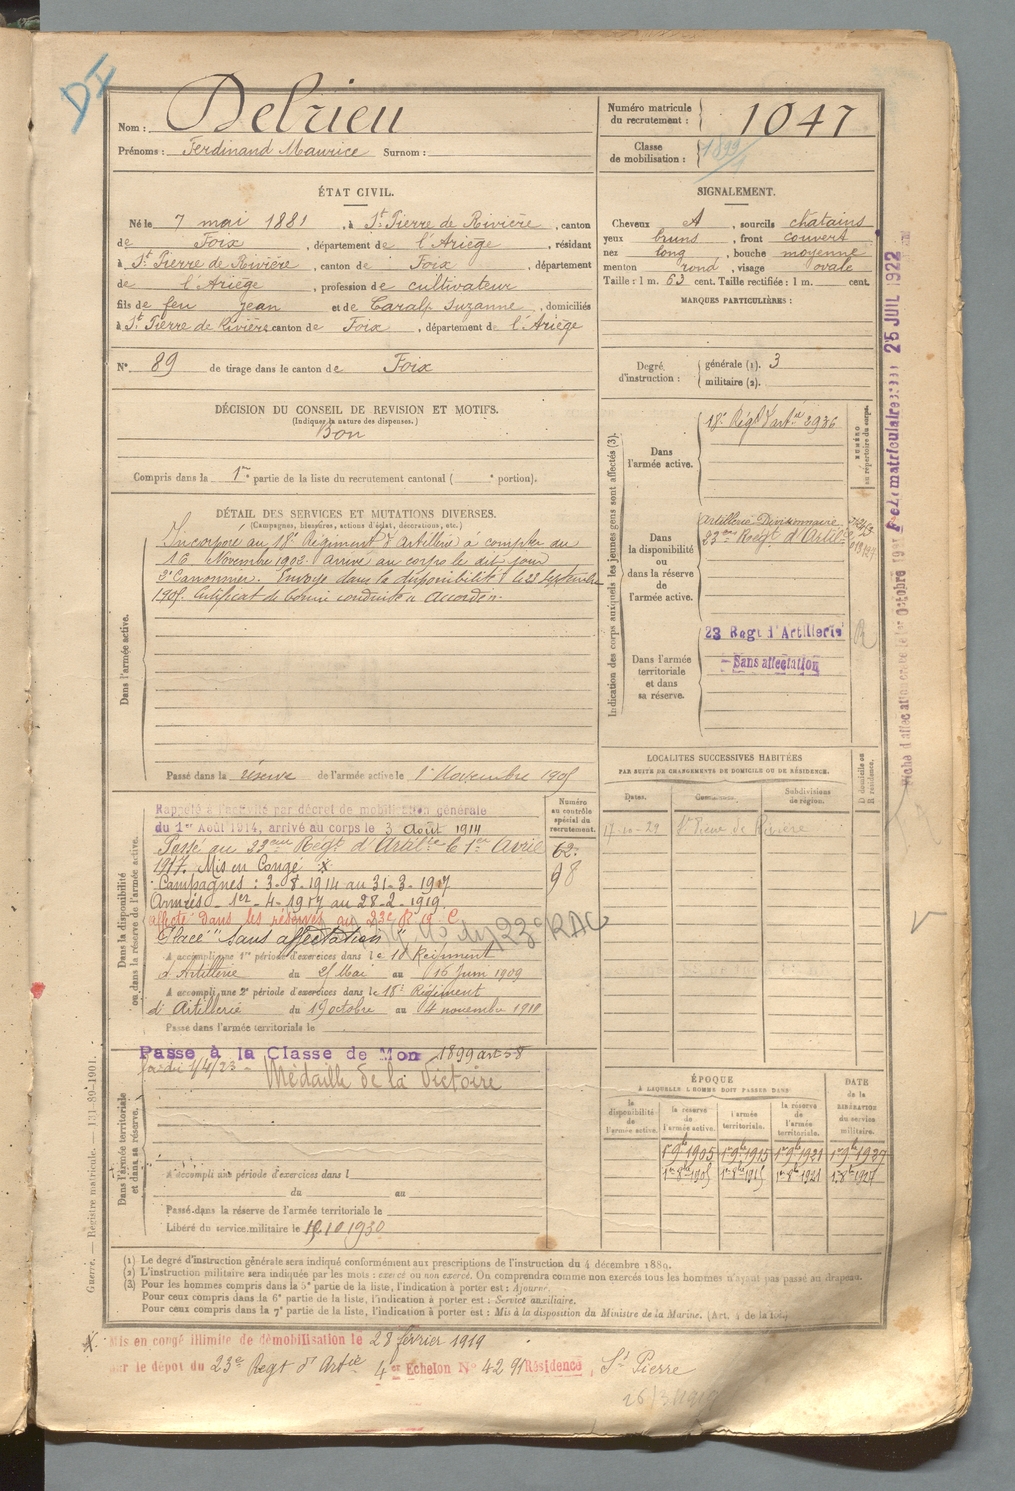 DI
Nom : Delrieu
Prénoms : Ferdinand Maurice Surnom :
Numéro matricule du recrutement : 1047
Classe de mobilisation : 1899
ÉTAT CIVIL.
Né le 7 mai 1881, à St Pierre de Rivière, canton
de Foix, département de l'Ariège, résidant
à St Pierre de Rivière, canton de Foix, département
de l'Ariège, profession de cultivateur
fils de feu Jean et de Caralp Suzanne, domiciliés
à St Pierre de Rivière canton de Foix, département de l'Ariège
N° 89 de tirage dans le canton de Foix
SIGNALEMENT.
Cheveux A, sourcils chatains
yeux bruns, front couvert
nez long, bouche moyenne
menton rond, visage ovale
Taille : 1 m. 63 cent. Taille rectifiée : 1 m. cent.
MARQUES PARTICULIÈRES :
Degré d'instruction : générale (1). 3
militaire (2).
DÉCISION DU CONSEIL DE REVISION ET MOTIFS.
(Indiquer la nature des dispenses.)
Bon
Compris dans la 1re partie de la liste du recrutement cantonal ( e portion).
DÉTAIL DES SERVICES ET MUTATIONS DIVERSES.
(Campagnes, blessures, actions d'éclat, décorations, etc.)
Dans l'armée active.
Incorporé au 18e Régiment d'Artillerie à compter du
16 Novembre 1902. Arrivé au corps le dit jour
2e Canonnier. Envoyé dans la disponibilité le 23 Septembre
1905. Certificat de bonne conduite accordé.
Passé dans la réserve de l'armée active le 1er Novembre 1905
Indication des corps auxquels les jeunes gens sont affectés (3).
NUMÉRO au répertoire du corps.
Dans l'armée active.
18e Régt d'artie 3936
Dans la disponibilité ou dans la réserve de l'armée active.
Artillerie Divisionnaire
23me Regt d'Artie
Dans l'armée territoriale et dans sa réserve.
23 Regt d'Artillerie
Sans affectation
Fiche d'affectation
Octobre 19
matriculaire
25 JUIL 1922
LOCALITÉS SUCCESSIVES HABITÉES
PAR SUITE DE CHANGEMENTS DE DOMICILE OU DE RÉSIDENCE.
Dates. Communes. Subdivisions de région. D domicile ou R résidence.
17-10-29 St Pierre de Rivière
Dans la disponibilité ou dans la réserve de l'armée active.
Numéro au contrôle spécial du recrutement.
62
98
Rappelé à l'activité par décret de mobilisation générale
du 1er Août 1914, arrivé au corps le 3 Août 1914
Passé au 23eme Regt d'Artie le 1er Avril
1917. Mis en Congé X
Campagnes : 3-8-1914 au 31-3-1917
Armées - 1er-4-1917 au 28-2-1919.
affecté dans les réserves au 23e R A C
Placé "Sans affectation"
23e RAC
A accompli une 1re période d'exercices dans le 18 Régiment
d'Artillerie du 25 Mai au 16 Juin 1909
A accompli une 2e période d'exercices dans le 18e Régiment
d'Artillerie du 19 octobre au 4 novembre 1911
Passé dans l'armée territoriale le
Passé à la Classe de Mon 1899 art 58
1/4/23
Médaille de la Victoire
Dans l'armée territoriale et dans sa réserve.
A accompli une période d'exercices dans l
du au
Passé dans la réserve de l'armée territoriale le
Libéré du service militaire le 10 1930
ÉPOQUE
A LAQUELLE L'HOMME DOIT PASSER DANS
la disponibilité de l'armée active. la réserve de l'armée active. l'armée territoriale. la réserve de l'armée territoriale. DATE de la LIBÉRATION du service militaire.
1er 9bre 1905 1er 9bre 1915 1er 9bre 1921 1er 9bre 1927
1er 8bre 1905 1er 8bre 1915 1er 8bre 1921 1er 8bre 1927
Guerre. — Registre matricule. — 131-89-1901.
(1) Le degré d'instruction générale sera indiqué conformément aux prescriptions de l'instruction du 4 décembre 1889.
(2) L'instruction militaire sera indiquée par les mots : exercé ou non exercé. On comprendra comme non exercés tous les hommes n'ayant pas passé au drapeau.
(3) Pour les hommes compris dans la 5e partie de la liste, l'indication à porter est : Ajourné.
Pour ceux compris dans la 6e partie de la liste, l'indication à porter est : Service auxiliaire.
Pour ceux compris dans la 7e partie de la liste, l'indication à porter est : Mis à la disposition du Ministre de la Marine. (Art. 4 de la loi.)
X. Mis en congé illimité de démobilisation le 28 février 1919
sur le dépôt du 23e Regt d'Artie 4e Echelon N° 4291 Résidence, St Pierre